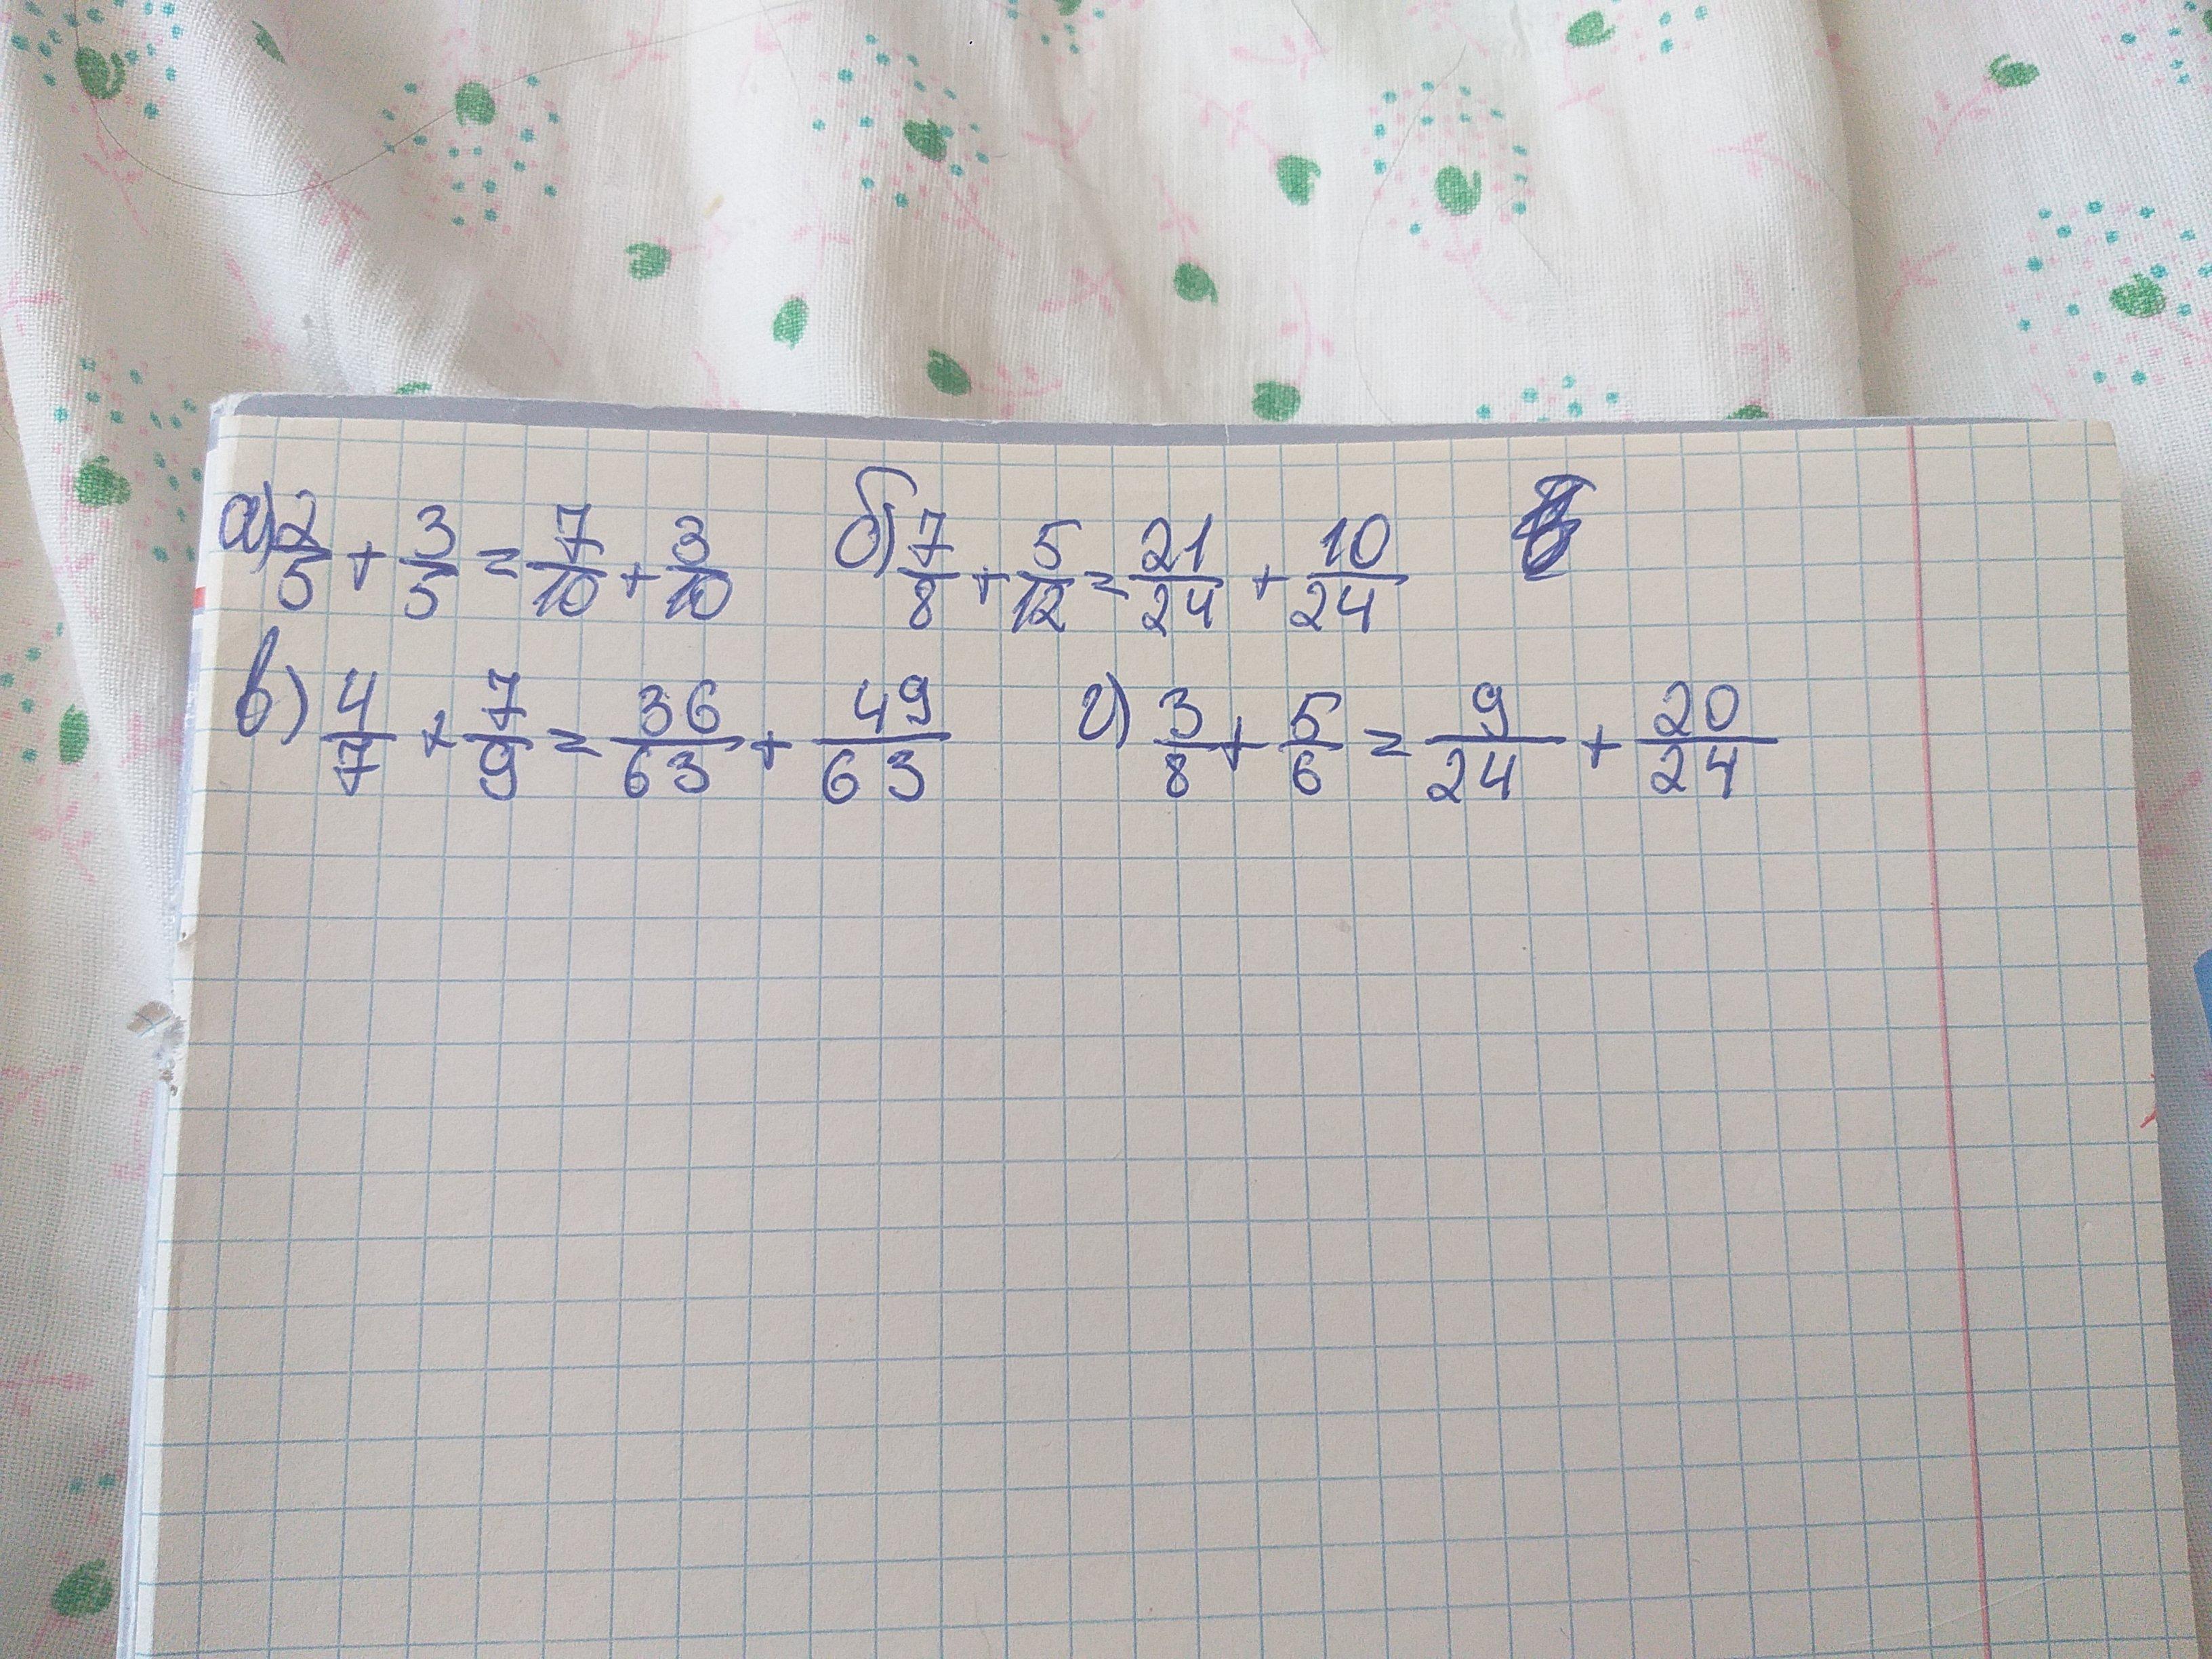 а) 2/5 + 3/5 = 7/10 + 3/10 б) 7/8 + 5/12 = 21/24 + 10/24
в) 4/7 + 7/9 = 36/63 + 49/63 г) 3/8 + 5/6 = 9/24 + 20/24